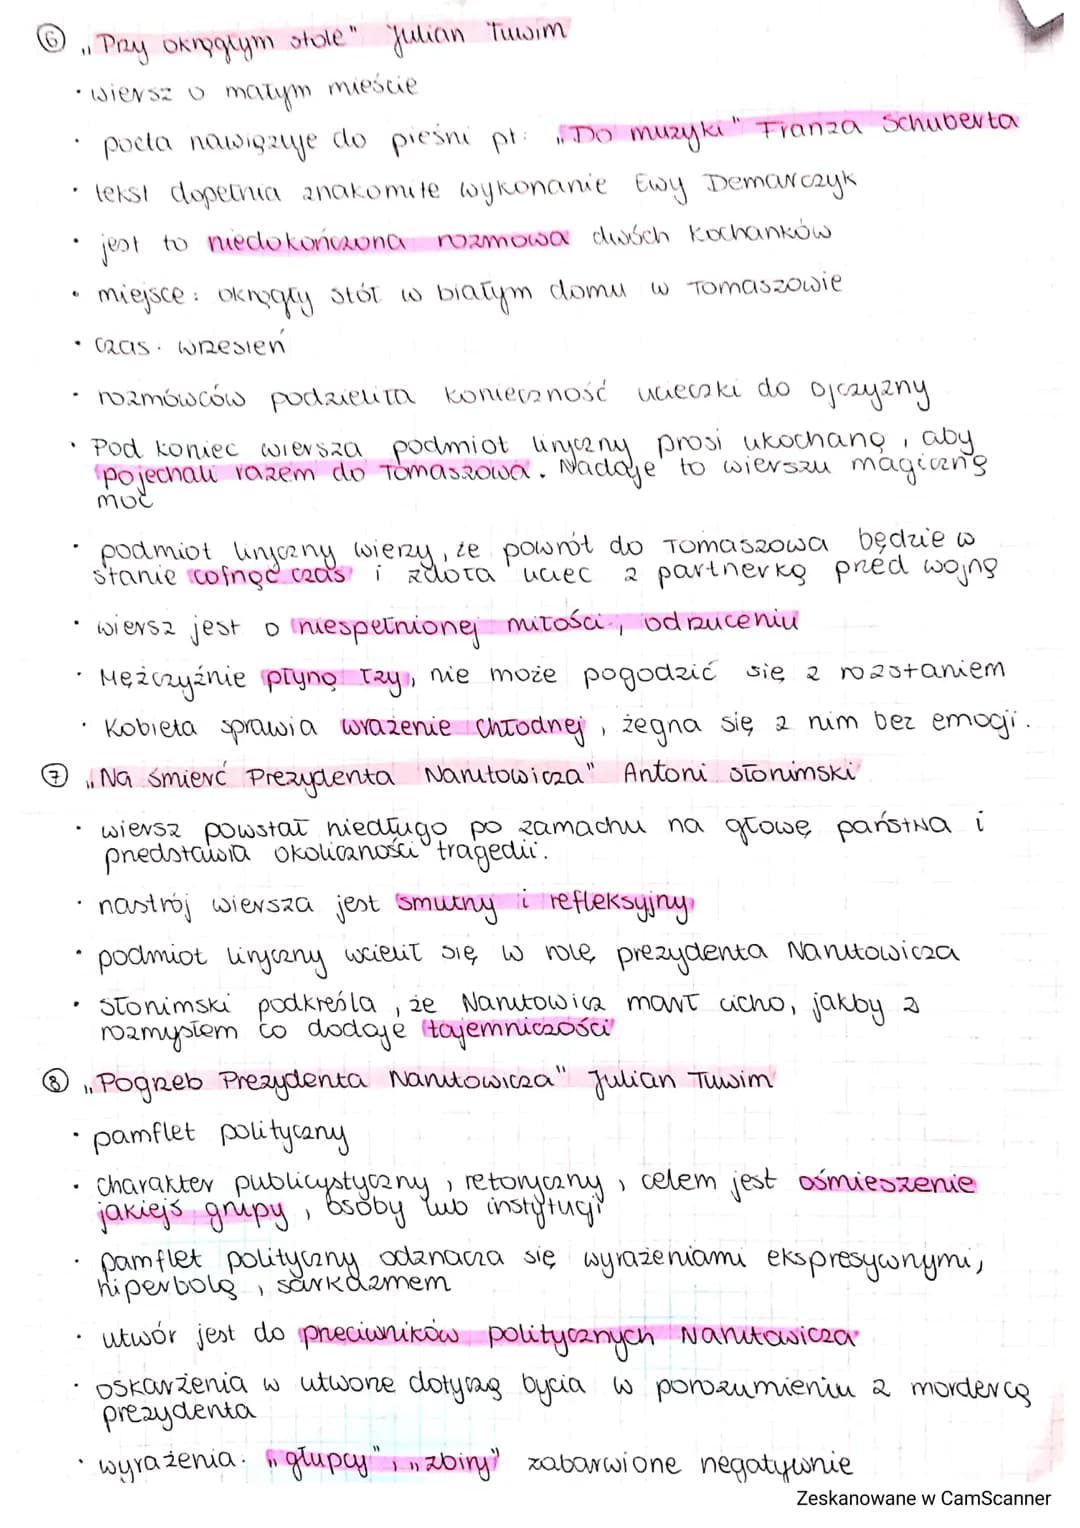 ⑥ „Przy okrągłym stole" Julian Tuwim
• wiersz o małym mieście
• poeta nawiązuje do pieśni pt: „Do muzyki" Franza Schuberta
• tekst dopełnia znakomite wykonanie Ewy Demarczyk
• jest to niedokończona rozmowa dwóch kochanków
• miejsce: okrągły stół w białym domu w Tomaszowie
• czas: wrzesień
• rozmówców podzieliła konieczność ucieczki do ojczyzny
• Pod koniec wiersza podmiot liryczny prosi ukochaną, aby
pojechali razem do Tomaszowa. Nadaje to wierszu magiczną
moc
• podmiot liryczny wierzy, że powrót do Tomaszowa będzie w
stanie cofnąć czas i zdoła uciec z partnerką przed wojną
• wiersz jest o niespełnionej miłości, odrzuceniu
• Mężczyźnie płyną łzy, nie może pogodzić się z rozstaniem
• Kobieta sprawia wrażenie chłodnej, żegna się z nim bez emocji.
⑦ „Na śmierć Prezydenta Narutowicza" Antoni Słonimski
• wiersz powstał niedługo po zamachu na głowę państwa i
przedstawia okoliczności tragedii.
• nastrój wiersza jest smutny i refleksyjny
• podmiot liryczny wcielił się w rolę prezydenta Narutowicza
• Słonimski podkreśla, że Narutowicz marł cicho, jakby z
rozmysłem co dodaje tajemniczości
⑧ „Pogrzeb Prezydenta Narutowicza" Julian Tuwim
• pamflet polityczny
• charakter publicystyczny, retoryczny, celem jest ośmieszenie
jakiejś grupy, osoby lub instytucji
• pamflet polityczny odznacza się wyrażeniami ekspresywnymi,
hiperbolą, sarkazmem
• utwór jest do przeciwników politycznych Narutowicza
• oskarżenia w utworze dotyczą bycia w porozumieniu z mordercą
prezydenta
• wyrażenia: „głupcy" i „zbiry" zabarwione negatywnie
Zeskanowane w CamScanner